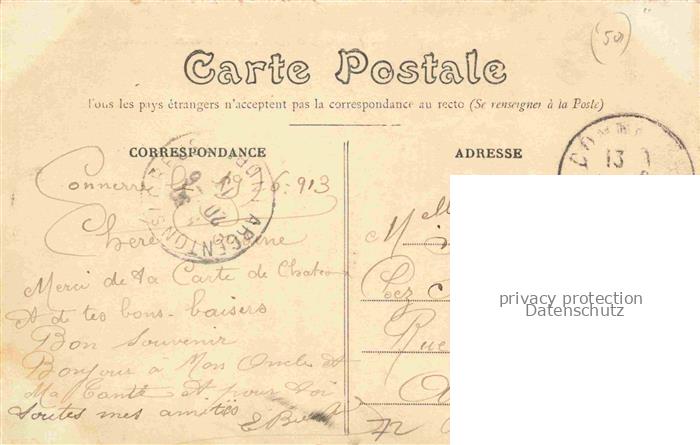 (50)
Carte Postale
Tous les pays étrangers n'acceptent pas la correspondance au recto (Se renseigner à la Poste)
CORRESPONDANCE
Connerré le 19-6-913
Chère
Merci de ta Carte de Chateau
et de tes bons baisers
Bon Souvenir
Bonjour à Mon Oncle et
Ma Tante et pour toi
toutes mes amitiés
ARGENTON
ADRESSE
Melle
Chez
Rue
privacy protection
Datenschutz